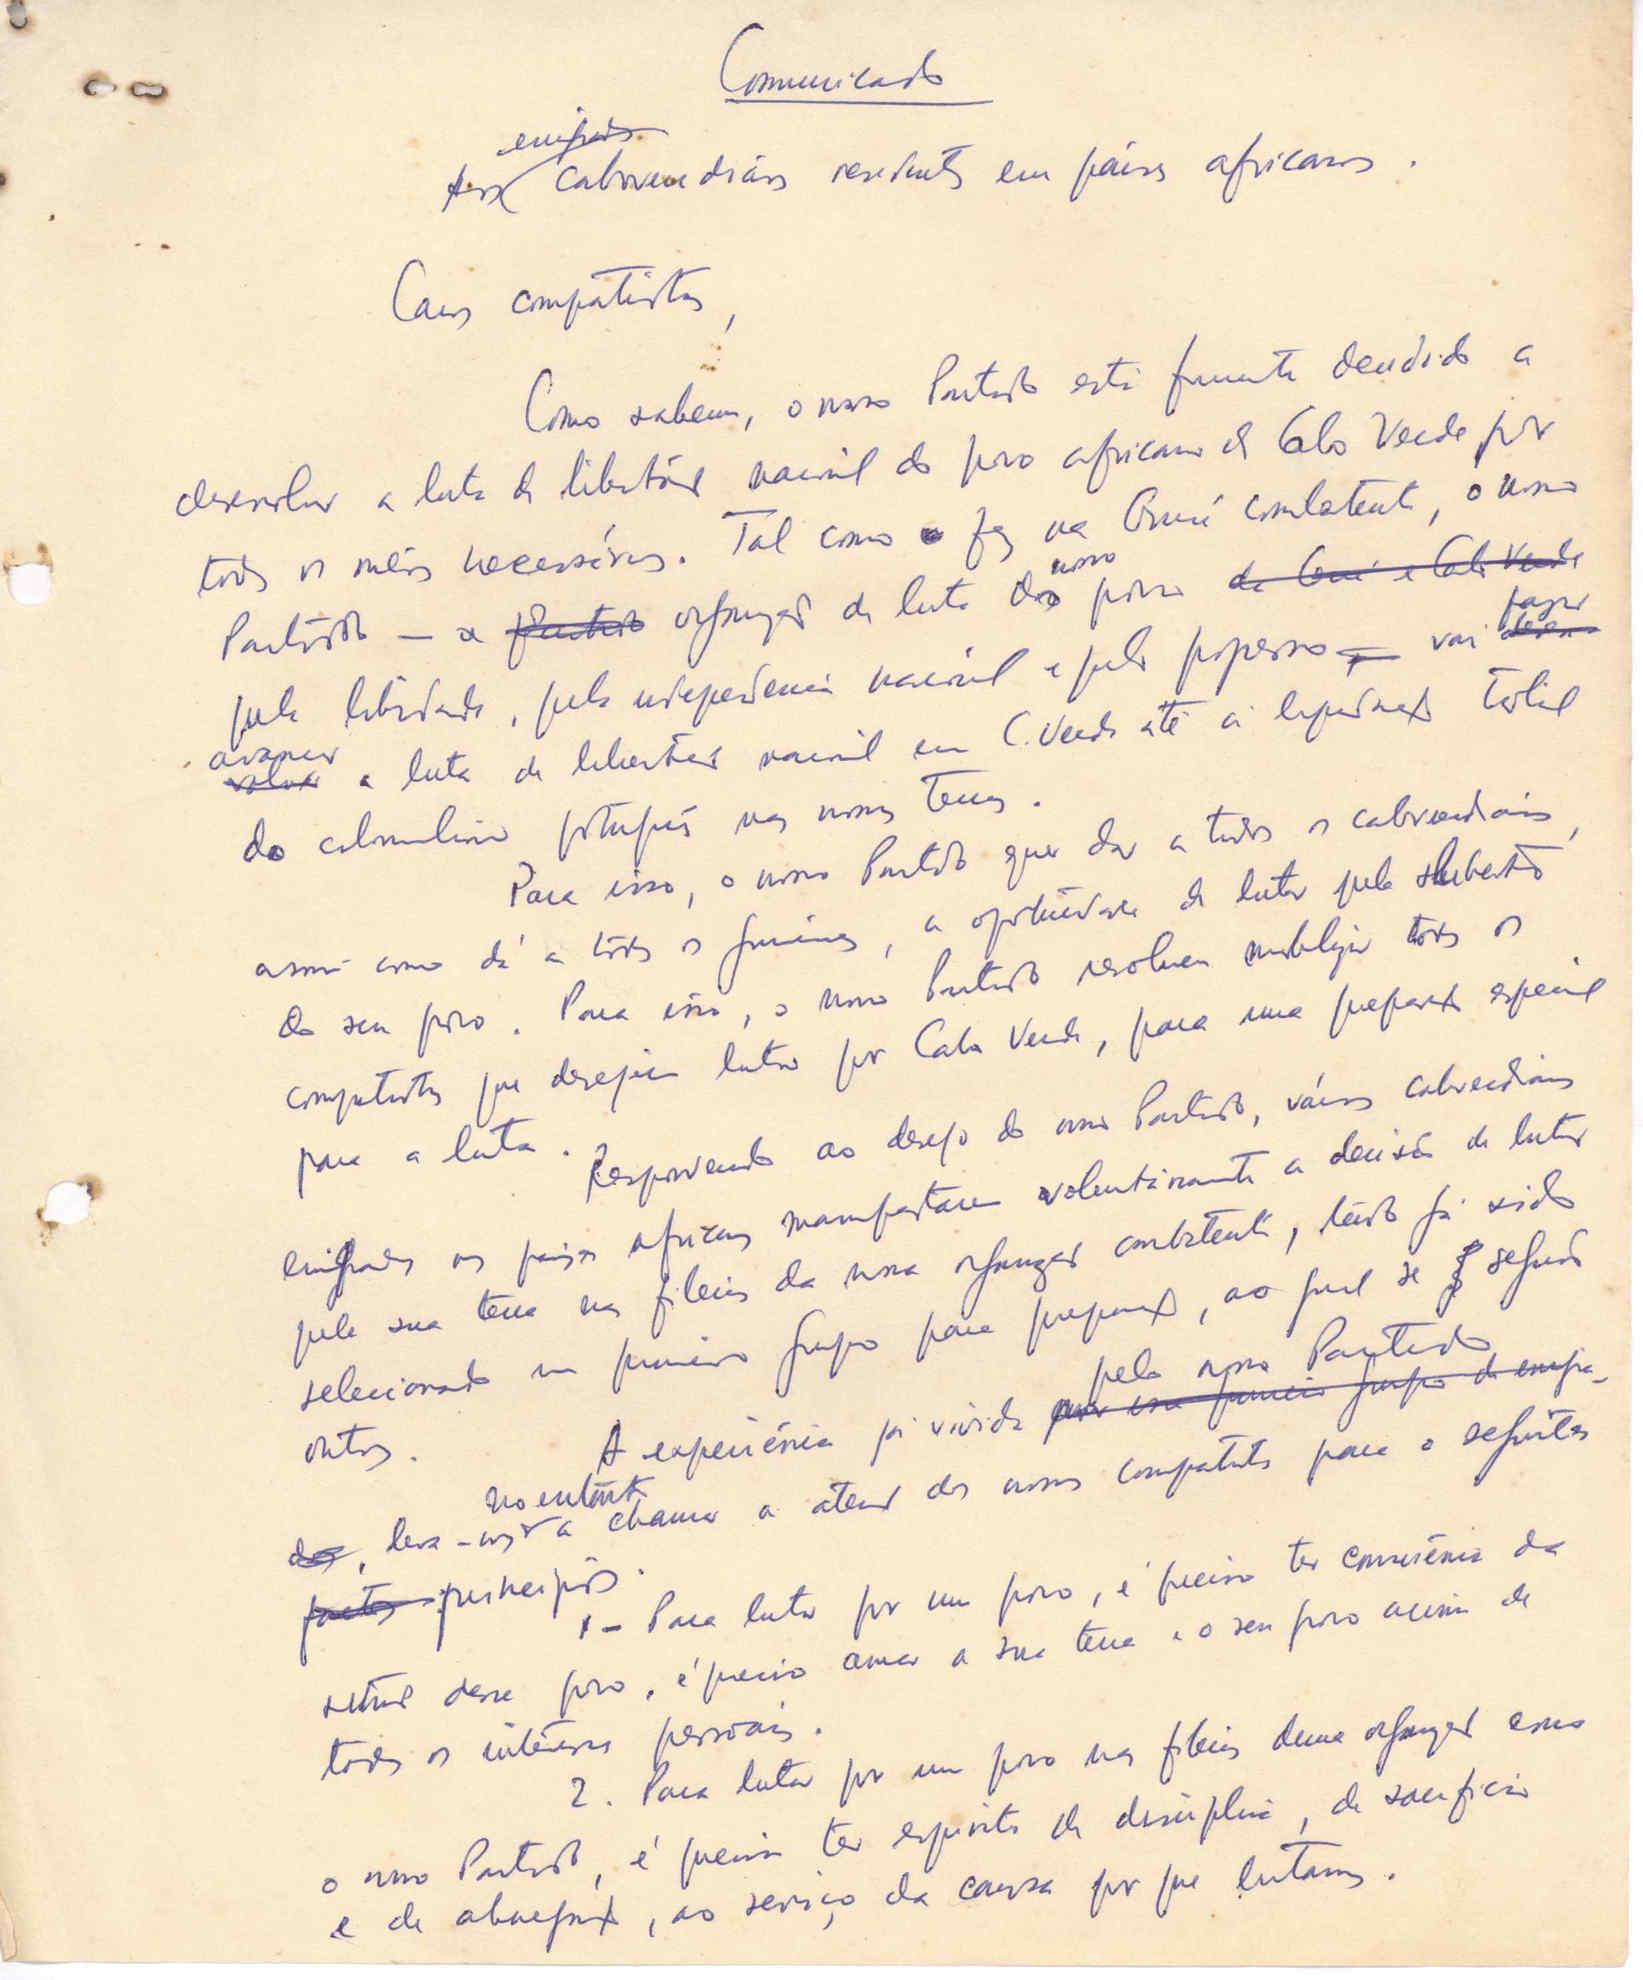 Comunicado
emigrados
Aos caboverdianos residentes em países africanos.
Caros compatriotas,
Como sabem, o nosso Partido está firmemente decidido a
desenvolver a luta de libertação nacional do povo africano de Cabo Verde por
todos os meios necessários. Tal como o faz na Guiné combatente, o nosso
nosso
Partido — a Partido organização de luta do povo da Guiné e Cabo Verde
fazer
pela liberdade, pela independência nacional e pelo progresso — vai desen-
avançar
volver a luta de libertação nacional em C. Verde até à liquidação total
do colonialismo português nas nossas terras.
Para isso, o nosso Partido quer dar a todos os caboverdianos,
assim como dá a todos os guineenses, a oportunidade de lutar pela libertação
do seu povo. Para isso, o nosso Partido resolveu mobilizar todos os
compatriotas que desejem lutar por Cabo Verde, para uma preparação especial
para a luta.
Respondendo ao desejo do nosso Partido, vários caboverdianos
emigrados nos países africanos manifestaram voluntàriamente a decisão de lutar
pela sua terra nas fileiras da nossa organização combatente, tendo já sido
seleccionado um primeiro grupo para preparação, ao qual se seguirão
outros.
pelo nosso Partido
A experiência já vivida por esse primeiro grupo de emigra-
no entanto
dos, leva-nos a chamar a atenção dos nossos compatriotas para o seguintes
pontos princípios:
1 - Para lutar por um povo, é preciso ter consciência da
situação desse povo, é preciso amar a sua terra e o seu povo acima de
todos os interesses pessoais.
2. Para lutar por um povo nas fileiras duma organização como
o nosso Partido, é preciso ter espírito de disciplina, de sacrifício
e de abnegação, ao serviço da causa por que lutamos.